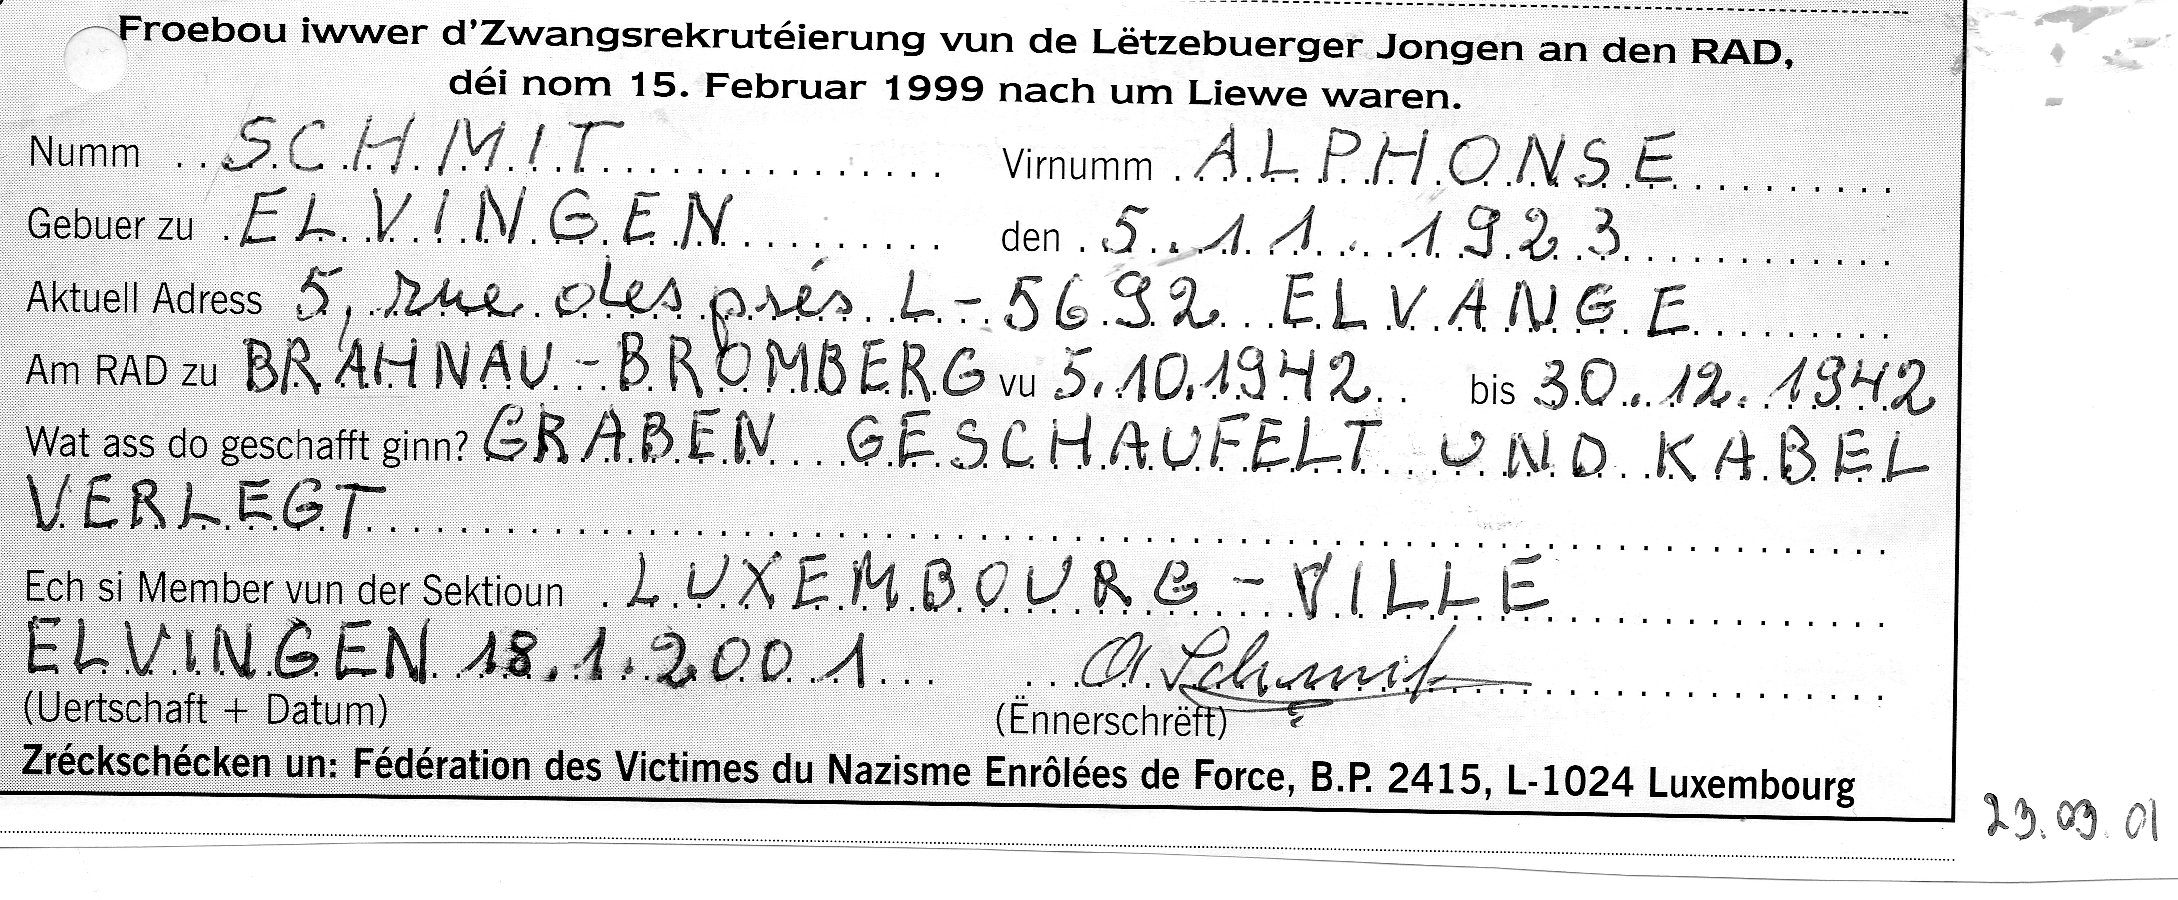 Froebou iwwer d'Zwangsrekrutéierung vun de Lëtzebuerger Jongen an den RAD,
déi nom 15. Februar 1999 nach um Liewe waren.
Numm SCHMIT Virnumm ALPHONSE
Gebuer zu ELVINGEN den 5.11.1923
Aktuell Adress 5, rue des prés L-5692 ELVANGE
Am RAD zu BRAHNAU-BROMBERG vu 5.10.1942 bis 30.12.1942
Wat ass do geschafft ginn? GRABEN GESCHAUFELT UND KABEL
VERLEGT
Ech si Member vun der Sektioun LUXEMBOURG-VILLE
ELVINGEN 18.1.2001 A. Schmit
(Uertschaft + Datum) (Ënnerschrëft)
Zréckschécken un: Fédération des Victimes du Nazisme Enrôlées de Force, B.P. 2415, L-1024 Luxembourg
23.03.01